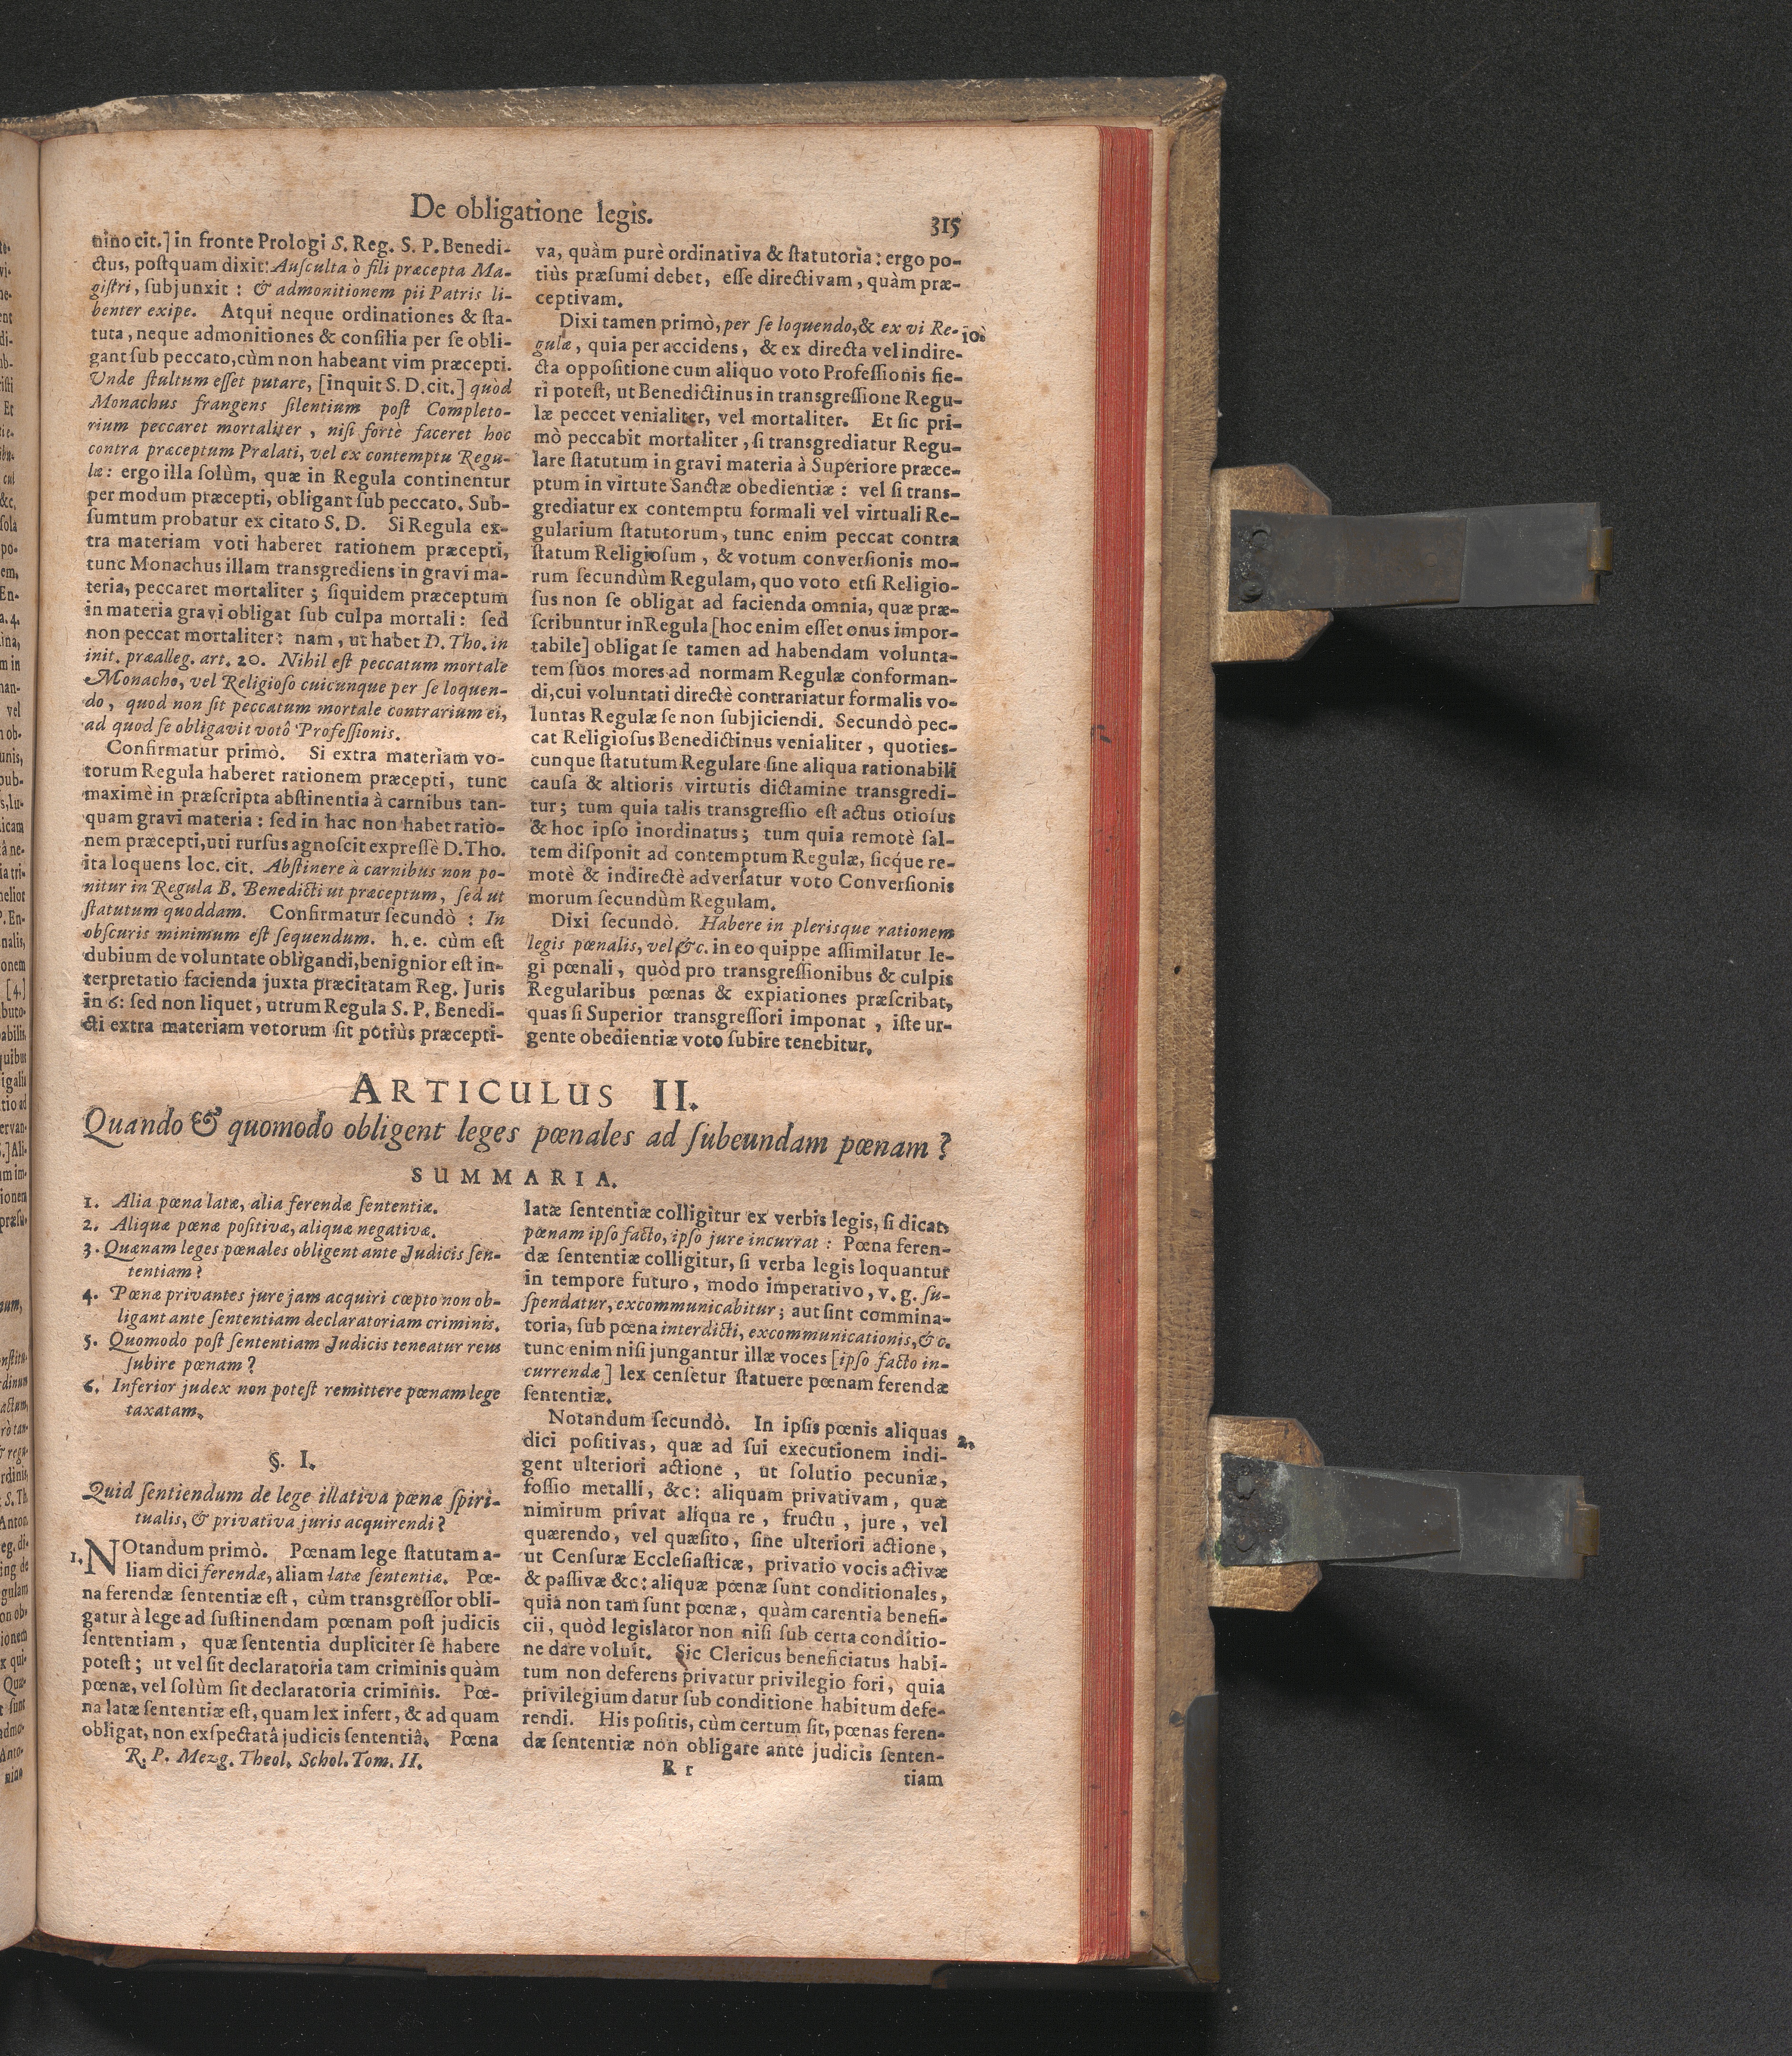 De obligatione legis.
315
nino cit.] in fronte Prologi S. Reg. S. P. Benedi-
ctus, postquam dixit: Ausculta ò fili præcepta Ma-
gistri, subjunxit : & admonitionem pii Patris li-
benter exipe. Atqui neque ordinationes & sta-
tuta, neque admonitiones & consilia per se obli-
gant sub peccato, cùm non habeant vim præcepti.
Unde stultum esset putare, [inquit S. D. cit.] quòd
Monachus frangens silentium post Completo-
rium peccaret mortaliter, nisi fortè faceret hoc
contra præceptum Prælati, vel ex contemptu Regu-
læ: ergo illa solùm, quæ in Regula continentur
per modum præcepti, obligant sub peccato. Sub-
sumtum probatur ex citato S. D. Si Regula ex-
tra materiam voti haberet rationem præcepti,
tunc Monachus illam transgrediens in gravi ma-
teria, peccaret mortaliter ; siquidem præceptum
in materia gravi obligat sub culpa mortali: sed
non peccat mortaliter: nam, ut habet D. Tho. in
init. præalleg. art. 20. Nihil est peccatum mortale
Monacho, vel Religioso cuicunque per se loquen-
do, quod non sit peccatum mortale contrarium ei,
ad quod se obligavit votô Professionis.
Confirmatur primò. Si extra materiam vo-
torum Regula haberet rationem præcepti, tunc
maximè in præscripta abstinentia à carnibus tan-
quam gravi materia : sed in hac non habet ratio-
nem præcepti, uti rursus agnoscit expressè D. Tho.
ita loquens loc. cit. Abstinere à carnibus non po-
nitur in Regula B. Benedicti ut præceptum, sed ut
statutum quoddam. Confirmatur secundò : In
obscuris minimum est sequendum. h. e. cùm est
dubium de voluntate obligandi, benignior est in-
terpretatio facienda juxta præcitatam Reg. Juris
in 6: sed non liquet, utrum Regula S. P. Benedi-
cti extra materiam votorum sit potiùs præcepti-
va, quàm purè ordinativa & statutoria : ergo po-
tiùs præsumi debet, esse directivam, quàm præ-
ceptivam.
Dixi tamen primò, per se loquendo, & ex vi Re-
10.
gulæ, quia per accidens, & ex directa vel indire-
cta oppositione cum aliquo voto Professionis fie-
ri potest, ut Benedictinus in transgressione Regu-
læ peccet venialiter, vel mortaliter. Et sic pri-
mò peccabit mortaliter, si transgrediatur Regu-
lare statutum in gravi materia à Superiore præce-
ptum in virtute Sanctæ obedientiæ : vel si trans-
grediatur ex contemptu formali vel virtuali Re-
gularium statutorum, tunc enim peccat contra
statum Religiosum, & votum conversionis mo-
rum secundùm Regulam, quo voto etsi Religio-
sus non se obligat ad facienda omnia, quæ præ-
scribuntur in Regula [hoc enim esset onus impor-
tabile] obligat se tamen ad habendam volunta-
tem suos mores ad normam Regulæ conforman-
di, cui voluntati directè contrariatur formalis vo-
luntas Regulæ se non subjiciendi. Secundò pec-
cat Religiosus Benedictinus venialiter, quoties-
cunque statutum Regulare sine aliqua rationabili
causa & altioris virtutis dictamine transgredi-
tur ; tum quia talis transgressio est actus otiosus
& hoc ipso inordinatus ; tum quia remotè sal-
tem disponit ad contemptum Regulæ, sicque re-
motè & indirectè adversatur voto Conversionis
morum secundùm Regulam.
Dixi secundò. Habere in plerisque rationem
legis pœnalis, vel &c. in eo quippe assimilatur le-
gi pœnali, quòd pro transgressionibus & culpis
Regularibus pœnas & expiationes præscribat,
quas si Superior transgressori imponat, iste ur-
gente obedientiæ voto subire tenebitur.
ARTICULUS II.
Quando & quomodo obligent leges pœnales ad subeundam pœnam ?
SUMMARIA.
1. Alia pœna latæ, alia ferendæ sententiæ.
2. Aliquæ pœnæ positivæ, aliquæ negativæ.
3. Quænam leges pœnales obligent ante Judicis sen-
tentiam ?
4. Pœnæ privantes jure jam acquiri cœpto non ob-
ligant ante sententiam declaratoriam criminis.
5. Quomodo post sententiam Judicis teneatur reus
subire pœnam ?
6. Inferior judex non potest remittere pœnam lege
taxatam.
§. I.
Quid sentiendum de lege illativa pœnæ spiri-
tualis, & privativa juris acquirendi ?
1. NOtandum primò. Pœnam lege statutam a-
liam dici ferendæ, aliam latæ sententiæ. Pœ-
na ferendæ sententiæ est, cùm transgressor obli-
gatur à lege ad sustinendam pœnam post judicis
sententiam, quæ sententia dupliciter se habere
potest ; ut vel sit declaratoria tam criminis quàm
pœnæ, vel solùm sit declaratoria criminis. Pœ-
na latæ sententiæ est, quam lex infert, & ad quam
obligat, non exspectatâ judicis sententiâ. Pœna
latæ sententiæ colligitur ex verbis legis, si dicat,
pœnam ipso facto, ipso jure incurrat : Pœna feren-
dæ sententiæ colligitur, si verba legis loquantur
in tempore futuro, modo imperativo, v. g. su-
spendatur, excommunicabitur ; aut sint commina-
toria, sub pœna interdicti, excommunicationis, & c.
tunc enim nisi jungantur illæ voces [ipso facto in-
currendæ] lex censetur statuere pœnam ferendæ
sententiæ.
Notandum secundò. In ipsis pœnis aliquas
2.
dici positivas, quæ ad sui executionem indi-
gent ulteriori actione, ut solutio pecuniæ,
fossio metalli, &c: aliquam privativam, quæ
nimirum privat aliqua re, fructu, jure, vel
quærendo, vel quæsito, sine ulteriori actione,
ut Censuræ Ecclesiasticæ, privatio vocis activæ
& passivæ &c: aliquæ pœnæ sunt conditionales,
quia non tam sunt pœnæ, quàm carentia benefi-
cii, quòd legislator non nisi sub certa conditio-
ne dare voluit. Sic Clericus beneficiatus habi-
tum non deferens privatur privilegio fori, quia
privilegium datur sub conditione habitum defe-
rendi. His positis, cùm certum sit, pœnas feren-
dæ sententiæ non obligare ante judicis senten-
R. P. Mezg. Theol. Schol. Tom. II.
R r
tiam